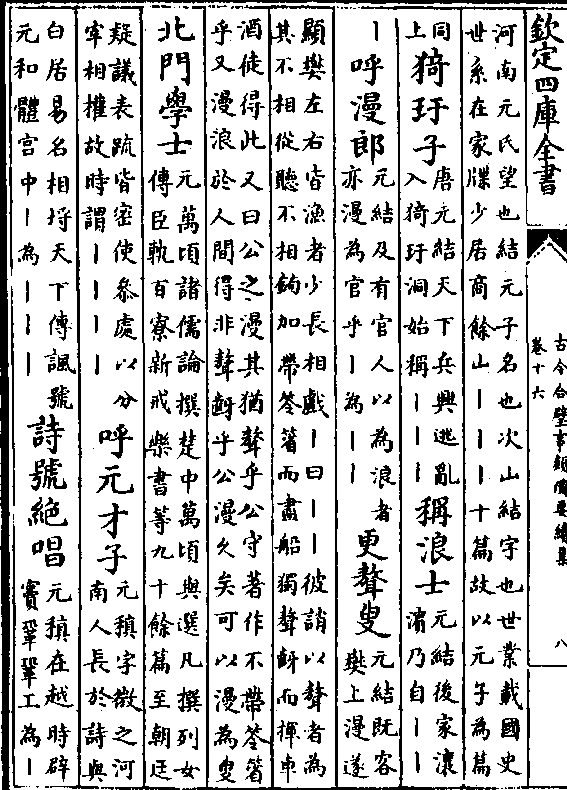 欽定四庫全書
古今合璧事類備要續集
卷十六
八
河南元氏望也結元子名也次山結字也世業載國史
世系在家牒少居商餘山丨丨丨十篇故以元子為篇
同上
猗玗子
唐元結天下兵興逃亂
入猗玗洞始稱丨丨丨
稱浪士
元結後家瀼
濵乃自丨丨
丨
呼漫郎
元結及有官人以為浪者
亦漫為官乎丨為丨丨
更聱叟
元結既客
樊上漫遂
顯樊左右皆漁者少長相戲丨曰丨丨彼誚以聱者為
其不相從聽不相鉤加帶笭箵而盡船獨聱齖而揮車
酒徒得此又曰公之漫其猶聱乎公守著作不帶笭箵
乎又漫浪於人間得非聱齖乎公漫久矣可以漫為叟
北門學士
元萬頃諸儒論撰楚中萬頃與選凡撰列女
傳臣軌百寮新戒樂書等九十餘篇至朝廷
疑議表疏皆密使參處以分
宰相權故時謂丨丨丨丨
呼元才子
元稹字微之河
南人長於詩與
白居易名相埒天下傳諷號
元和體宫中丨為丨丨丨
詩號絶唱
元稹在越時辟
竇鞏鞏工為丨